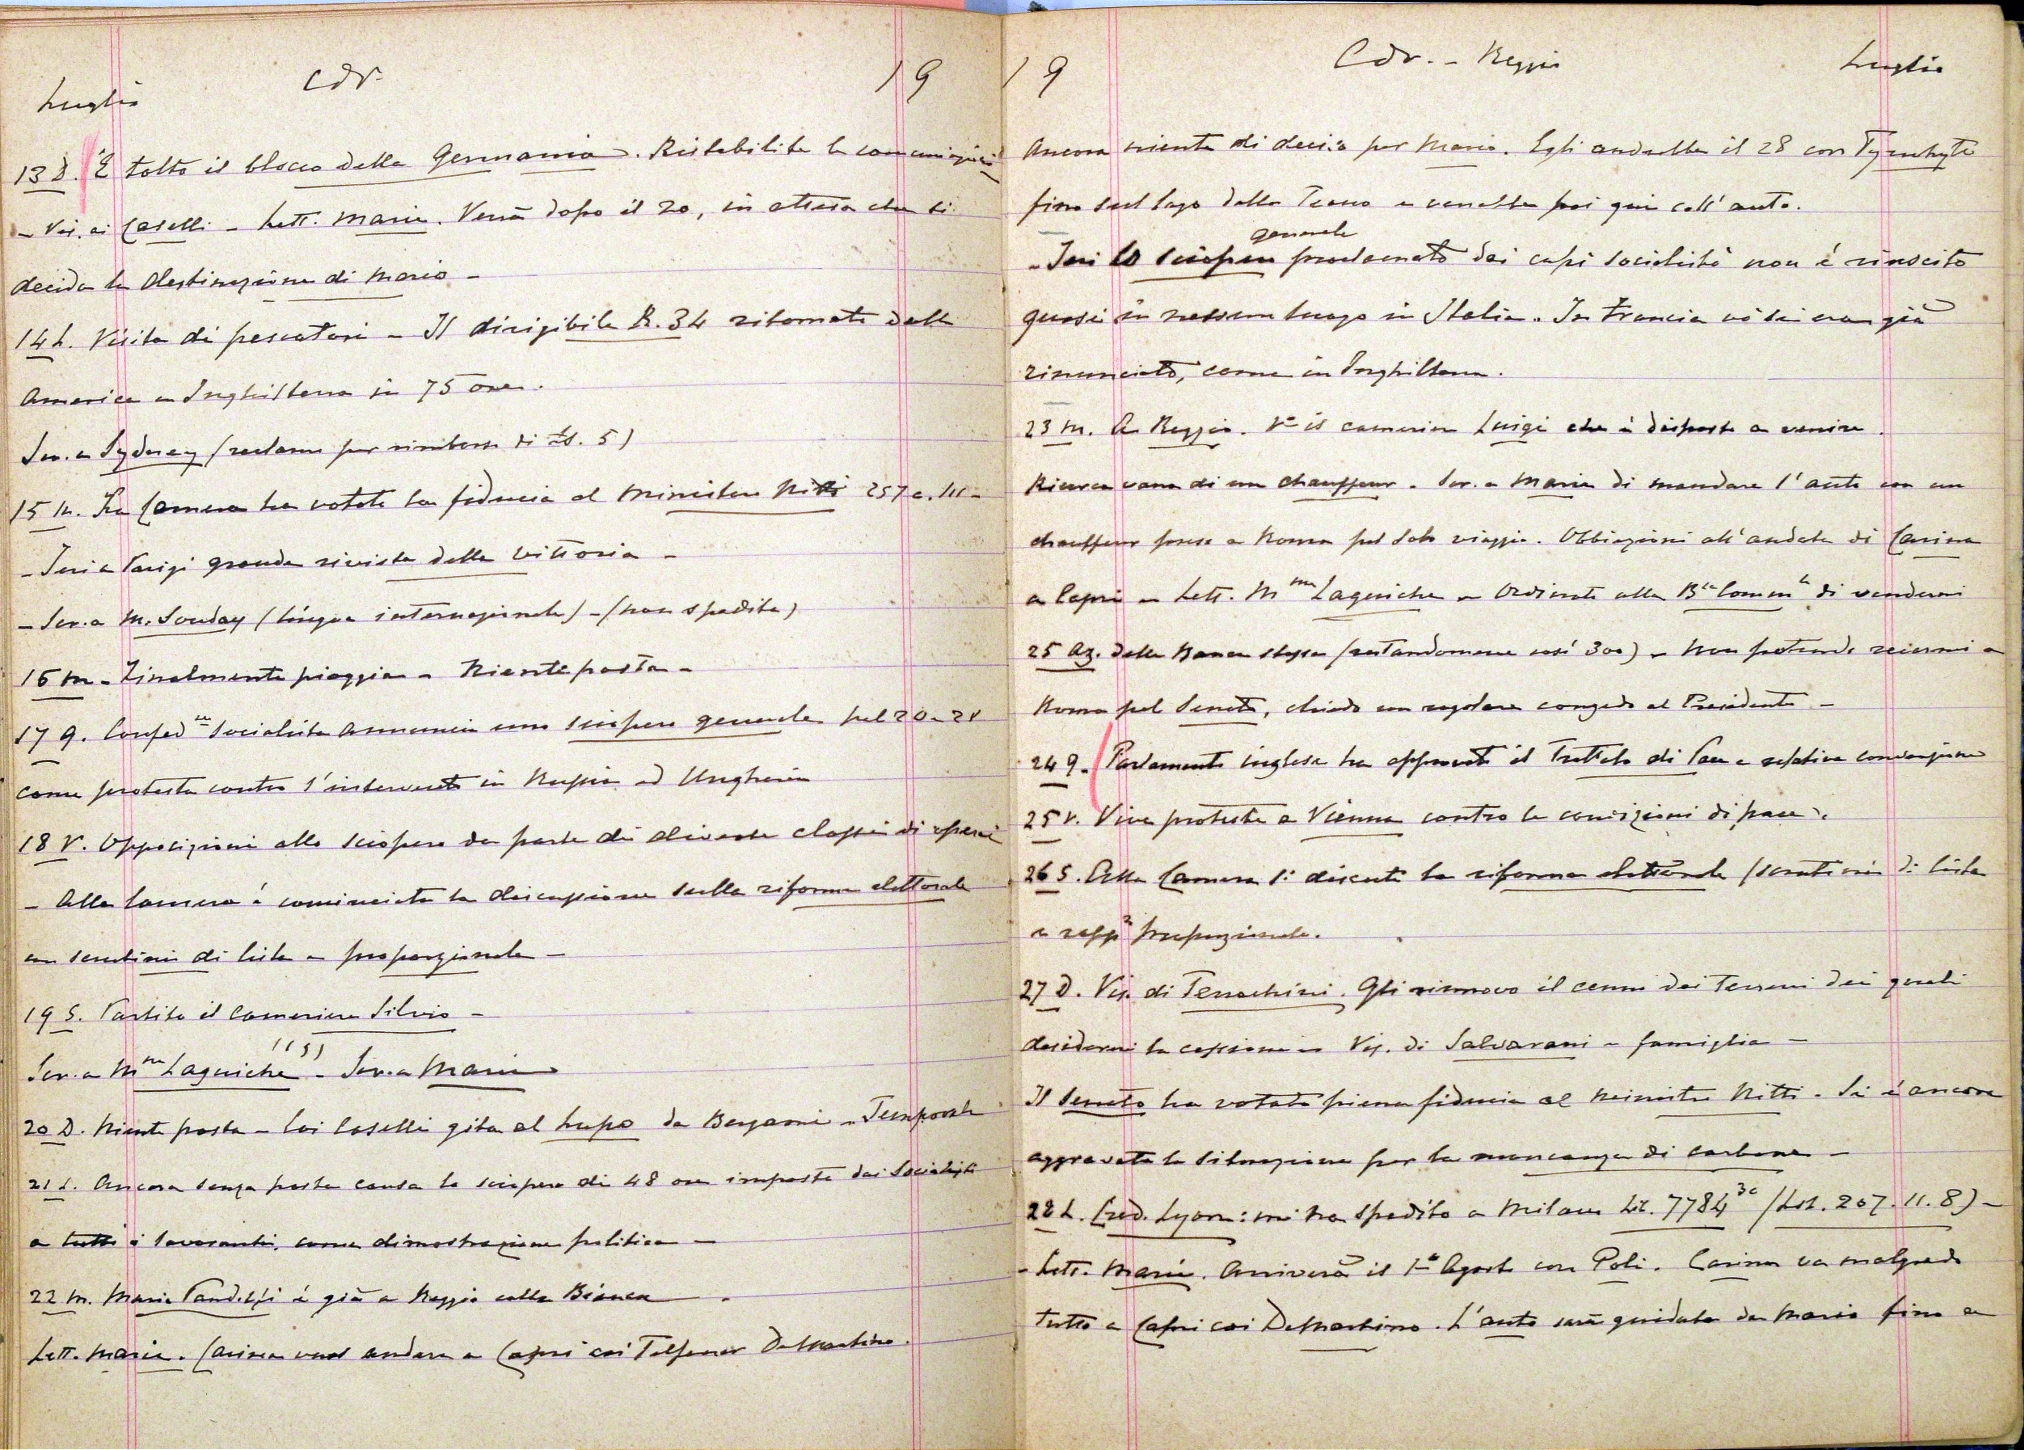 Luglio Cdr. 19
13 D. È tolto il blocco della Germania. Ristabilite le comunicazioni
- Vis. ai Caselli - Lett. Maria. Verrà dopo il 20, in attesa che si
decida la destinazione di Mario -
14 L. Visita di pescatori - Il dirigibile R. 34 ritornato dalla
America in Inghilterra in 75 ore.
Scr. a Sydney (reclamo per rimborso di Ls. 5)
15 M. La Camera ha votato la fiducia al Ministero Nitti 257 a 111 -
- Ieri a Parigi grande rivista della Vittoria -
- Scr. a M. Souday (lingua internazionale) - (non spedita)
16 M - Finalmente pioggia - Niente posta -
17 G. Confed.ne Socialista annuncia uno sciopero generale pel 20 - 21
come protesta contro l'intervento in Russia ed Ungheria
18 V. Opposizioni allo sciopero da parte di diverse classi di operai
- Alla Camera è cominciata la discussione sulla riforma elettorale
con scrutinio di lista e proporzionale -
19 S. Partito il cameriere Silvio -
Scr. a Mme Laguiche (15) - Scr. a Maria
20 D. Niente posta - Coi Caselli gita al Lupo da Bergami - Temporale
21 L. Ancora senza posta causa lo sciopero di 48 ore imposto dai Socialisti
a tutti i lavoranti, come dimostrazione politica -
22 M. Maria Pandolfi è già a Reggio colla Bianca -
Lett. Maria. Carina vuol andare a Capri coi Telfener DeMartino.
19 Cdr. - Reggio Luglio
Ancora niente di deciso per Mario. Egli andrebbe il 28 con Tyrwhytt
fino sul lago della Tecno e verrebbe poi qui coll'auto.
- Ieri lo sciopero generale proclamato dai capi socialisti non è riuscito
quasi in nessun luogo in Italia. In Francia vi si era già
rinunciato, come in Inghilterra.
23 M. A Reggio. V.o il cameriere Luigi che è disposto a venire.
Ricerca vana di un chauffeur. Scr. a Maria di mandare l'auto con un
chauffeur preso a Roma pel solo viaggio. Obbiezioni all'andata di Carina
a Capri - Lett. Mme Laguiche - Ordinato alla B.ca Comm.le di vendermi
25 Az. della Banca stessa (restandomene così 300) - Non potendo recarmi a
Roma pel Senato, chiedo un regolare congedo al Presidente -
24 G. Parlamento inglese ha approvato il Trattato di Pace e relativa convenzione
25 V. Vive proteste a Vienna contro le condizioni di pace.
26 S. Alla Camera si discute la riforma elettorale (scrutinio di lista
e rapp.za proporzionale.
27 D. Vis. di Terrachini. Gli rinnovo il cenno dei terreni dei quali
desiderei la cessione - Vis. di Salvarani e famiglia -
Il Senato ha votato piena fiducia al Ministro Nitti. Si è ancora
aggravata la situazione per la mancanza di carbone -
28 L. Cred. Lyon: mi ha spedito a Milano Lit. 7784.30 (Lst. 207.11.8) -
- Lett. Maria. Arriverà il 1° Agosto con Poli. Carina va malgrado
tutto a Capri coi DeMartino. L'auto sarà guidata da Mario fino a